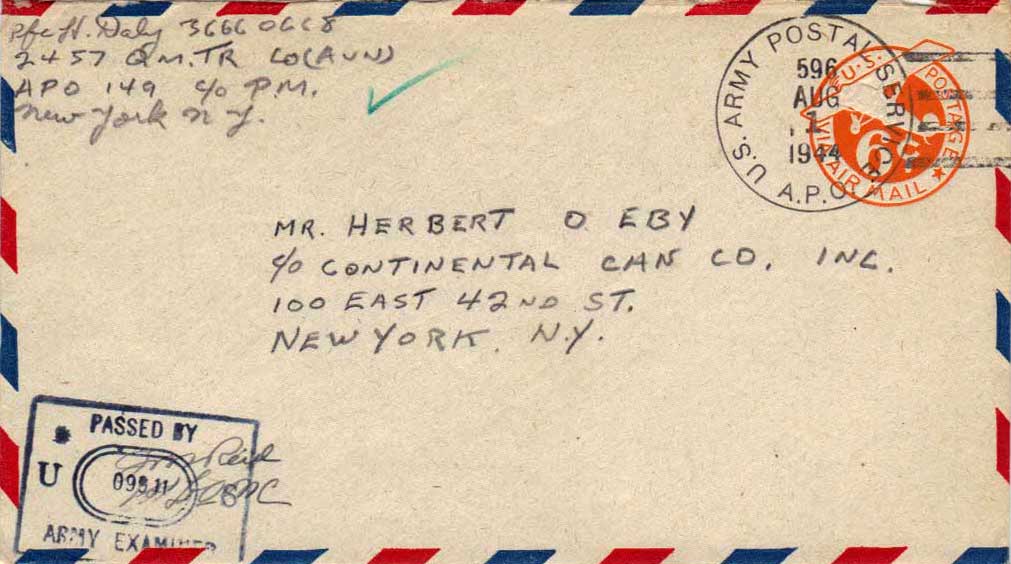 Pfc H. Daly 36660668
2457 Q.M.TR CO(AVN)
APO 149 c/o P.M.
New York N Y.
U.S. ARMY POSTAL SERVICE
A.P.O.
596
AUG
1
1944
U.S. POSTAGE
6¢
VIA AIR MAIL
MR. HERBERT O EBY
c/o CONTINENTAL CAN CO, INC.
100 EAST 42ND ST.
NEW YORK, N.Y.
PASSED BY
U S
09511
ARMY EXAMINER